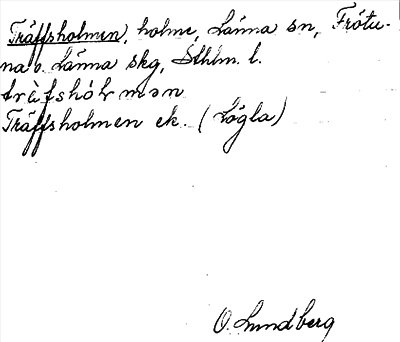 Träffsholmen, holme, Länna sn, Frötu-
na o. Länna skg, Sthlm. l.
trä̀fshól mən
Träffsholmen ek. (Lögla)
O. Lundberg